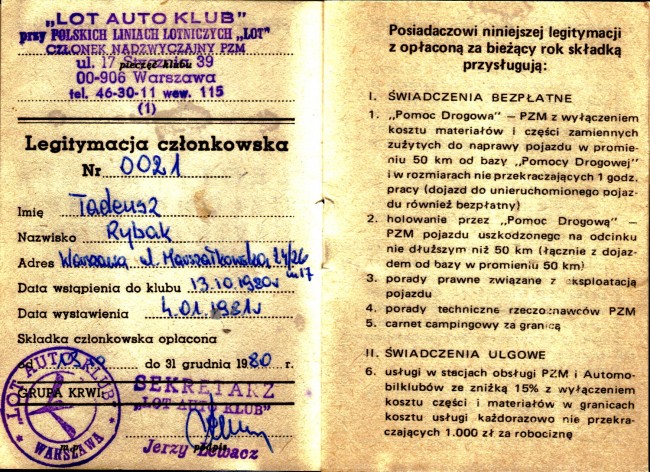 „LOT AUTO KLUB"
przy POLSKICH LINIACH LOTNICZYCH „LOT"
CZŁONEK NADZWYCZAJNY PZM
ul. 17 Stycznia 39
pieczęć klubu
00-906 Warszawa
tel. 46-30-11 wew. 115
(1)
Legitymacja członkowska
Nr 0021
Imię Tadeusz
Nazwisko Rybak
Adres Warszawa ul. Marszałkowska 24/26
m 17
Data wstąpienia do klubu 13.10.1980r
Data wystawienia 4.01.1981r
Składka członkowska opłacona
do 31 grudnia 1980 r.
GRUPA KRWI
SEKRETARZ
"LOT AUTO KLUB"
"LOT AUTO KLUB"
WARSZAWA
m.p.
podpis
Jerzy
Posiadaczowi niniejszej legitymacji
z opłaconą za bieżący rok składką
przysługują:
I. ŚWIADCZENIA BEZPŁATNE
1. „Pomoc Drogowa" – PZM z wyłączeniem
kosztu materiałów i części zamiennych
zużytych do naprawy pojazdu w promie-
niu 50 km od bazy „Pomocy Drogowej"
i w rozmiarach nie przekraczających 1 godz.
pracy (dojazd do unieruchomionego pojaz-
du również bezpłatny)
2. holowanie przez „Pomoc Drogową" –
PZM pojazdu uszkodzonego na odcinku
nie dłuższym niż 50 km (łącznie z dojaz-
dem od bazy w promieniu 50 km)
3. porady prawne związane z eksploatacją
pojazdu
4. porady techniczne rzeczoznawców PZM
5. carnet campingowy za granicą
II. ŚWIADCZENIA ULGOWE
6. usługi w stacjach obsługi PZM i Automo-
bilklubów ze zniżką 15% z wyłączeniem
kosztu części i materiałów w granicach
kosztu usługi każdorazowo nie przekra-
czających 1.000 zł za robociznę